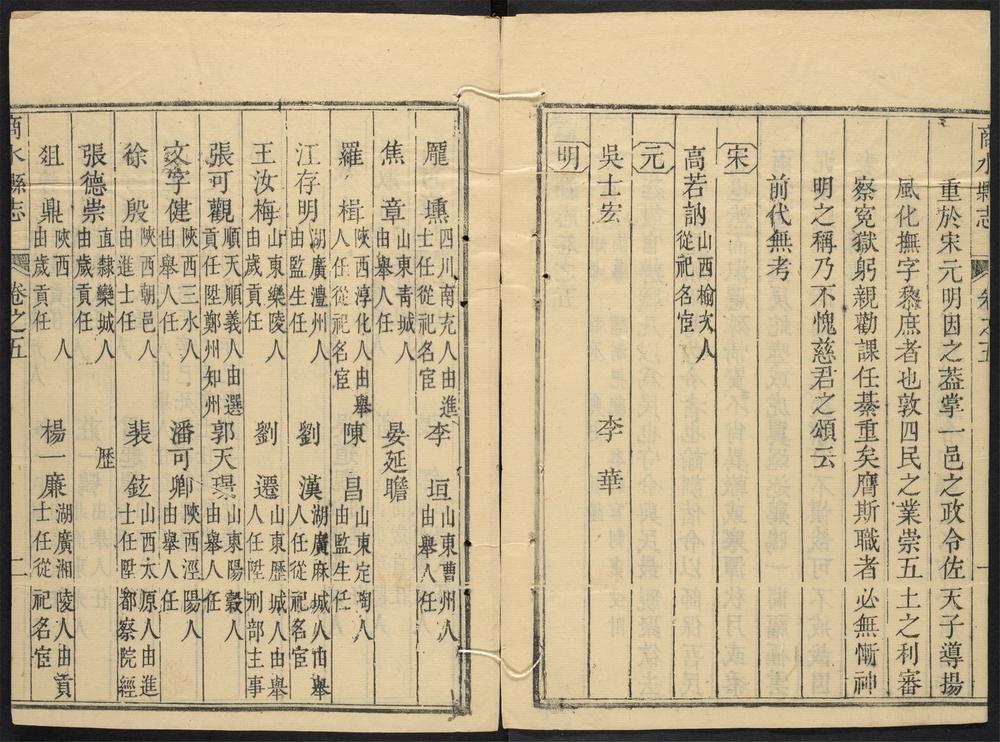 商水縣志 卷之五 一
重於宋元明因之蓋掌一邑之政令佐天子導揚
風化撫字黎庶者也敦四民之業崇五土之利審
察寃獄躬親勸課任綦重矣膺斯職者必無慚神
明之稱乃不愧慈君之頌云
前代無考
宋
高若訥 山西榆次人從祀名宦
元
吳士宏 李華
明
龎壎 四川南充人由進士任從祀名宦 李垣 山東曹州人由舉人任
焦章 山東青城人由舉人任 晏延瞻
羅楫 陝西淳化人由舉人任從祀名宦 陳昌 山東定陶人由監生任
江存明 湖廣澧州人由監生任 劉漢 湖廣麻城人由舉人任從祀名宦
王汝梅 山東樂陵人由歲貢任 劉遷 山東歷城人由舉人任陞刑部主事
張可觀 順天順義人由選貢任陞鄭州知州 郭天璟 山東陽穀人由舉人任
文字健 陝西三水人由舉人任 潘可卿 陝西涇陽人由舉人任
徐殷 陝西朝邑人由進士任 裴鉉 山西太原人由進士任陞都察院經歷
張德崇 直隸欒城人由歲貢任
狙鼎 陝西人由歲貢任 楊一廉 湖廣湘陵人由貢士任從祀名宦
商水縣志 卷之五 二